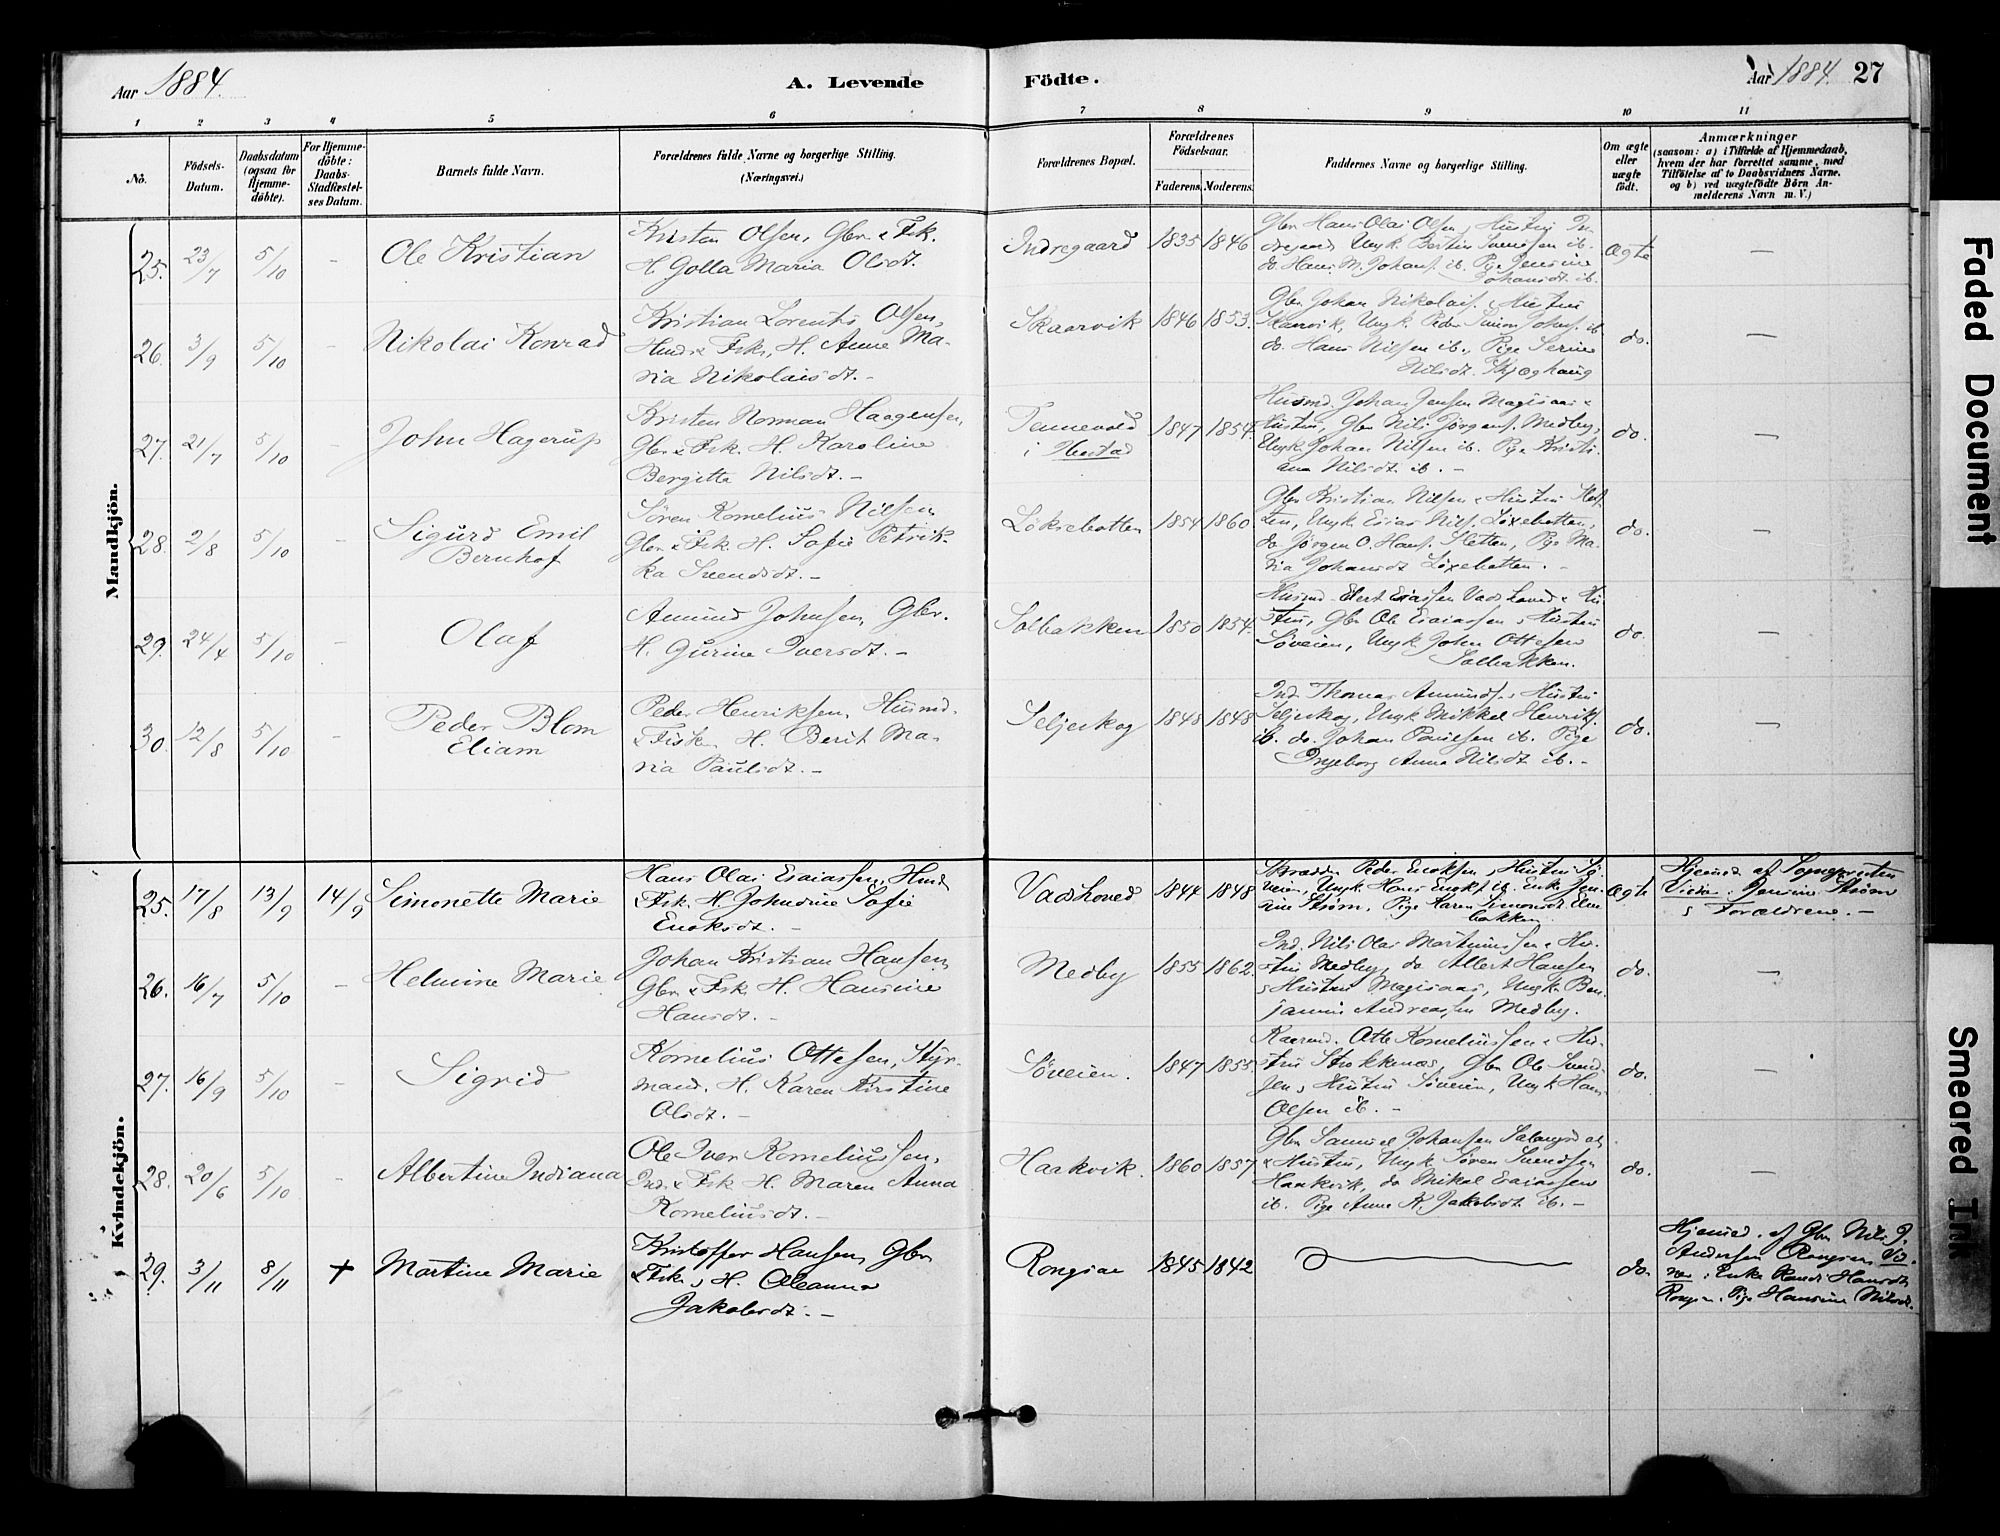 Aar 1884.
A. Levende Födte.
Aar 1884. 27
1 2 3 4 5 6 7 8 9 10 11
No.
Födsels-Datum.
Daabsdatum (ogsaa for Hjemmedöbte).
For Hjemmedöbte: Daabs-Stadfæstelses Datum.
Barnets fulde Navn.
Forældrenes fulde Navne og borgerlige Stilling. (Næringsvei.)
Forældrenes Bopæl.
Forældrenes Födselsaar.
Faderens. Moderens.
Faddernes Navne og borgerlige Stilling.
Om ægte eller uægte födt.
Anmærkninger
(saasom: a) i Tilfælde af Hjemmedaab,
hvem der har forrettet samme, med
Tilföielse af to Daabsvidners Navne.
og b) ved uægtefödte Börn Anmelderens Navn m.V.)
Mandkjön.
25. 23/7 5/10 - Ole Kristian
Kristen Olsen, Gbr. & Fsk.
H. Golla Maria Olsdt.
Indregaard 1835 1846
Gbr Hans Olai Olsen & Hustru In-
dregaard, Ungk. Bertin Svendsen ib.
do. Hans M. Johans. ib. Pige Jensine
Johansdt ib.
Ægte —
26. 3/9 5/10 - Nikolai Konrad
Kristian Lorents Olsen,
Husm & Fsk, H. Anne Ma-
ria Nikolaisdt. -
Skaarvik 1846 1853.
Gbr. Johan Nikolais. & Hustru
Skaarvik, Ungk. Peder Simon Johns. ib
do. Hans Nilsen ib., Pige Serine
Nilsdt.
do. —
27. 21/7 5/10 - John Hagerup
Kristen Norman Haagensen,
Gbr & Fsk. H. Karoline
Bergitta Nilsdt. -
Tennevold i Ibestad 1847 1854.
Husmd. Johan Jensen Magisaas &
Hustru, Gbr Nils Jørgens. Medby,
Ungk. Johan Nilsen ib. Pige Kristi-
ana Nilsdt. ib. -
do. —
28. 2/8 5/10 - Sigurd Emil
Bernhof
Søren Kornelius Nilsen
Gbr & Fsk. H. Sofie Petrik-
ka Svendsdt. -
Løksebotten 1854 1860
Gbr Kristian Nilsen & Hustru Slet-
ten, Ungk. Esias Nils. Løxebotten,
do Jørgen O. Hans. Sletten, Pige Ma-
ria Johansdt Løxebotten. -
do. —
29. 24/4 5/10 - Olaf
Amund Johnsen, Gbr.
H. Gurine Iversdt. -
Solbakken 1850 1854.
Husmd. Elert Esiassen Vadshoved & Hu-
stru, Gbr Ole Esaiassen & Hustru
Søveien, Ungk John Ottesen
Solbakken.
do. —
30. 12/8 5/10 - Peder Blom
Eliam
Peder Henriksen, Husmd.
& Fisk. H. Berit Ma-
ria Paulsdt. -
Seljeskog 1848 1848
Ind. Thomas Amunds. & Hustru
Seljeskog, Ungk Mikkel Henriks.
ib. do. Johan Paulsen ib. Pige
Ingeborg Anna Nilsdt ib. -
do. —
Kvindekjön.
25. 17/8 13/9 14/9 Simonette Marie
Hans Olai Esaiassen, Husm
& Fsk. H. Johndine Sofie
Enoksdt. -
Vadshoved 1844 1848
Skrædder Peder Enoksen & Hustru Sø-
veien, Ungk Hans Enoks. ib. Enke Jen-
sine Strøm, Pige Karen Simonsdt Elve-
bakken
Ægte
Hjemmed af Sognepresten
Vidner: Jensine Strøm
& Forældrene. -
26. 16/7 5/10 - Helmine Marie
Johan Kristian Hansen,
Gbr & Fsk. H. Hansine
Hansdt. -
Medby 1855 1862.
Ind. Nils Olai Martinussen & Hu-
stru Medby, do Albert Hansen
& Hustru Magisaas, Ungk. Ben-
jamin Andreassen Medby.
do. —
27. 16/9 5/10 - Sigrid
Kornelius Ottesen, Styr-
mand. H. Karen Kirstine
Olsdt. -
Søveien. 1847 1855
Kaarmd. Otte Korneliussen & Hu-
stru Strokkenæs, Gbr Ole Svend-
sen & Hustru Søveien, Ungk Hans
Olsen ib. -
do. —
28. 20/6 5/10 - Albertine Indiana
Ole Iver Korneliussen,
Ind. & Fsk H. Maren Anna
Korneliusdt. -
Haakvik. 1860 1857
Gbr Samuel Johansen
& Hustru, Ungk Søren Svendsen
Haakvik, do Mikal Esaiassen
ib. Pige Anne K. Jakobsdt ib. -
do. —
29. 3/11 8/11 + Martine Marie
Kristoffer Hansen, Gbr
& Fsk, H. Oleanna
Jakobsdt. -
Rongsaa 1845 1842
do.
Hjemmed. af Gbr Nils J.
Andersen, Vid-
ner: Enke Randi Hansdt
Pige Hansine Nilsdt.
Faded Document
Smeared Ink